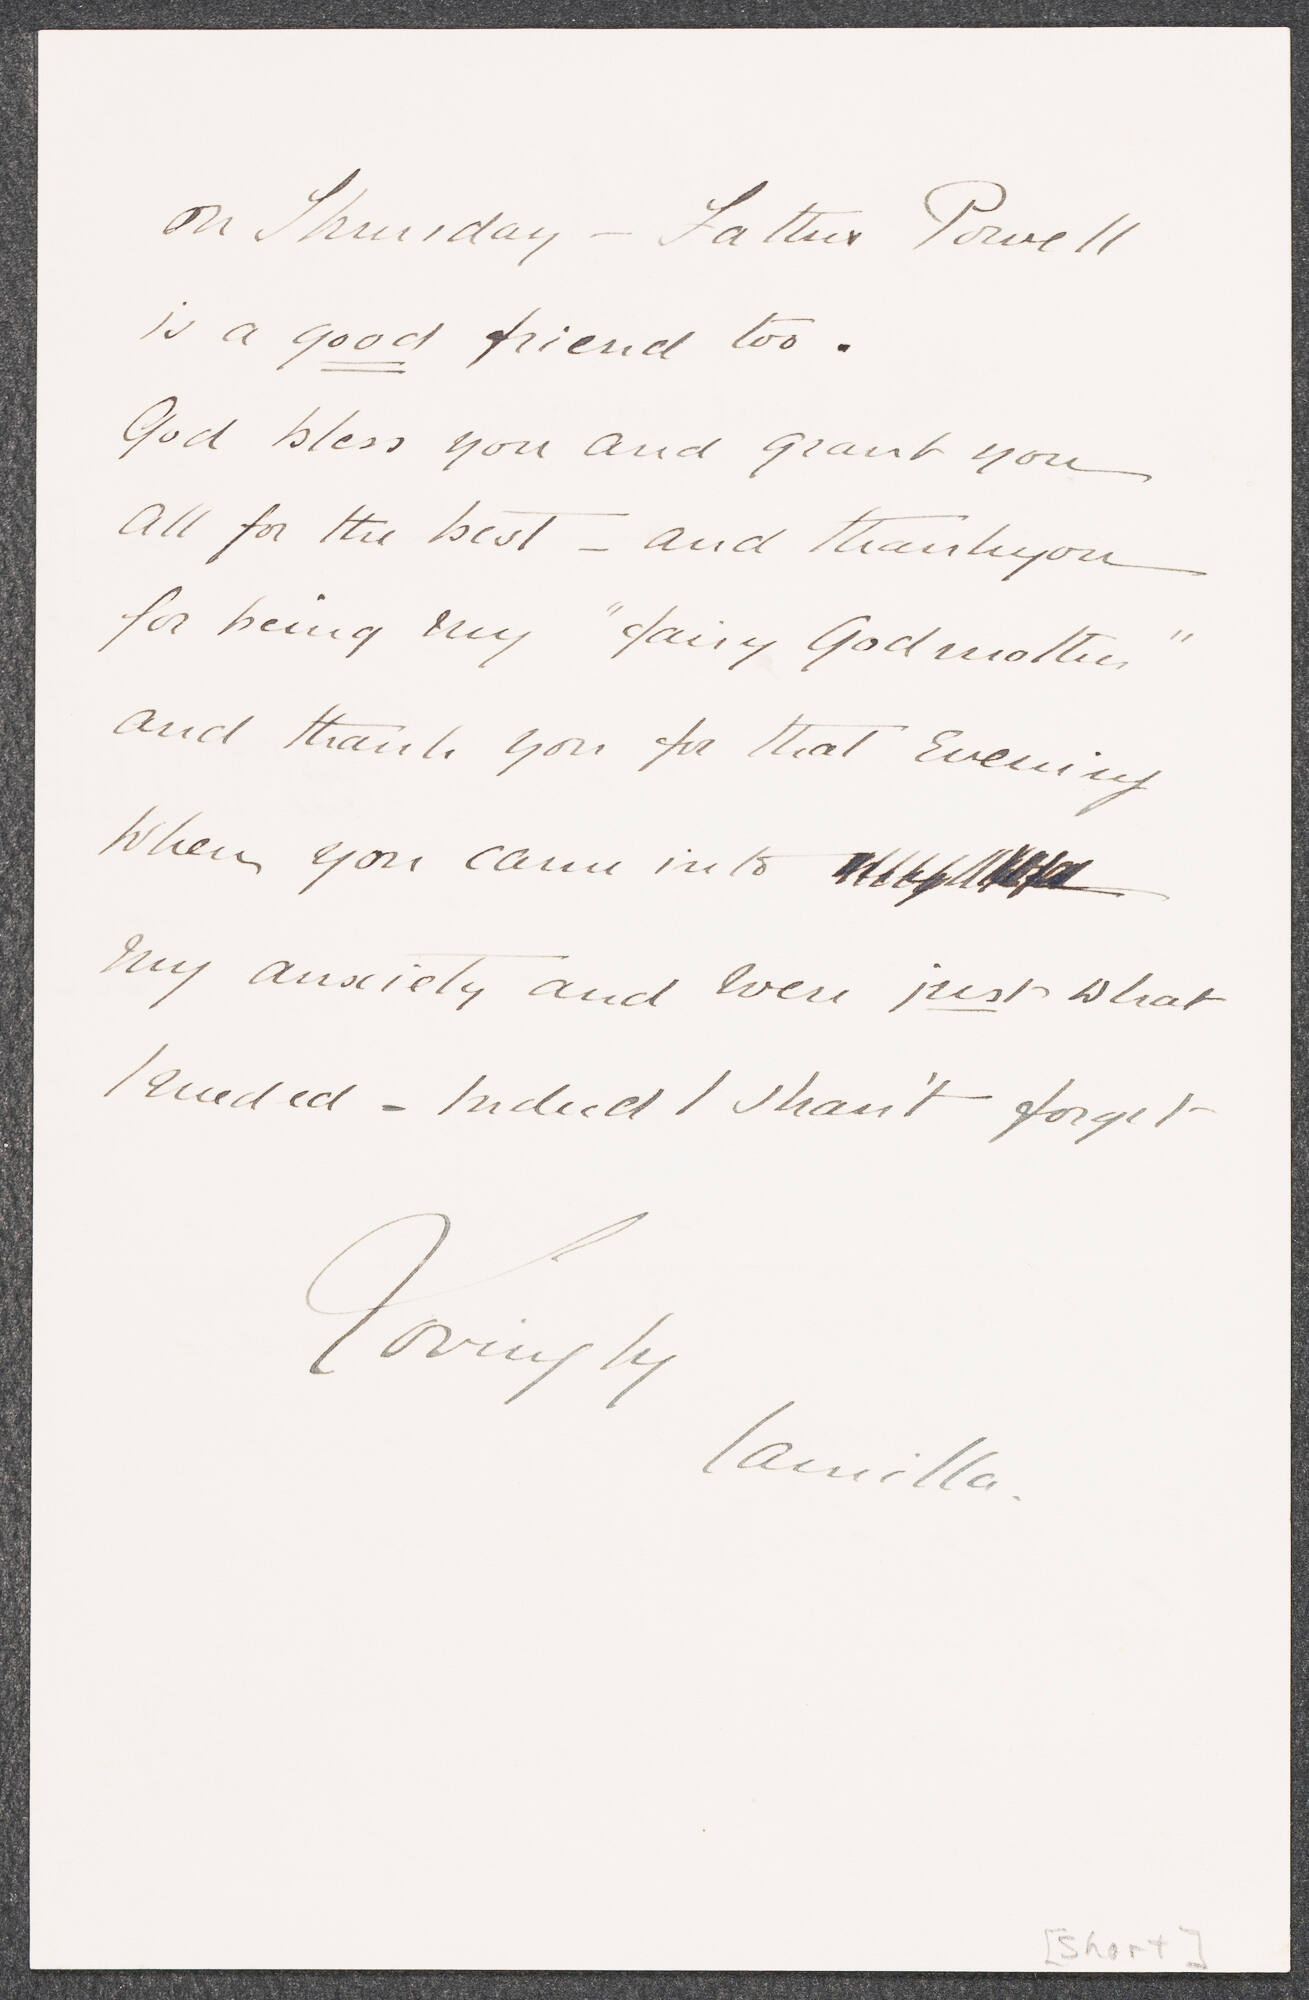 on Thursday – Father Powell
is a good friend too.
God bless you and grant you
all for the best – and thankyou
for being my "fairy Godmother"
and thank you for that Evening
when you came into
my anxiety and were just what
I needed – Indeed I shan't forget
Lovingly
Camilla.
[Short]